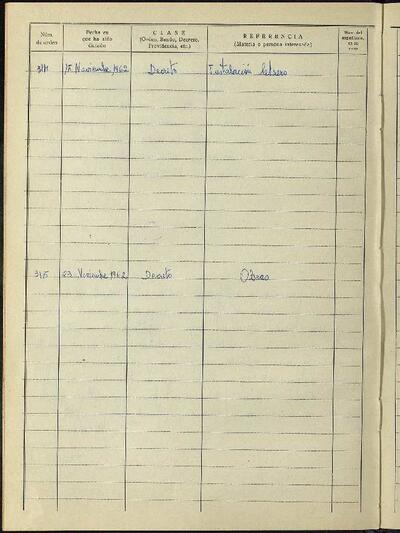 Núm. de orden
Fecha en que ha sido dictada
CLASE
(Orden, Bando, Decreto, Providencia, etc.)
REFERENCIA
(Materia o persona interesada)
Núm. del
15 Noviembre 1962 Decreto Instalación letrero
23 Noviembre 1962 Decreto Obras